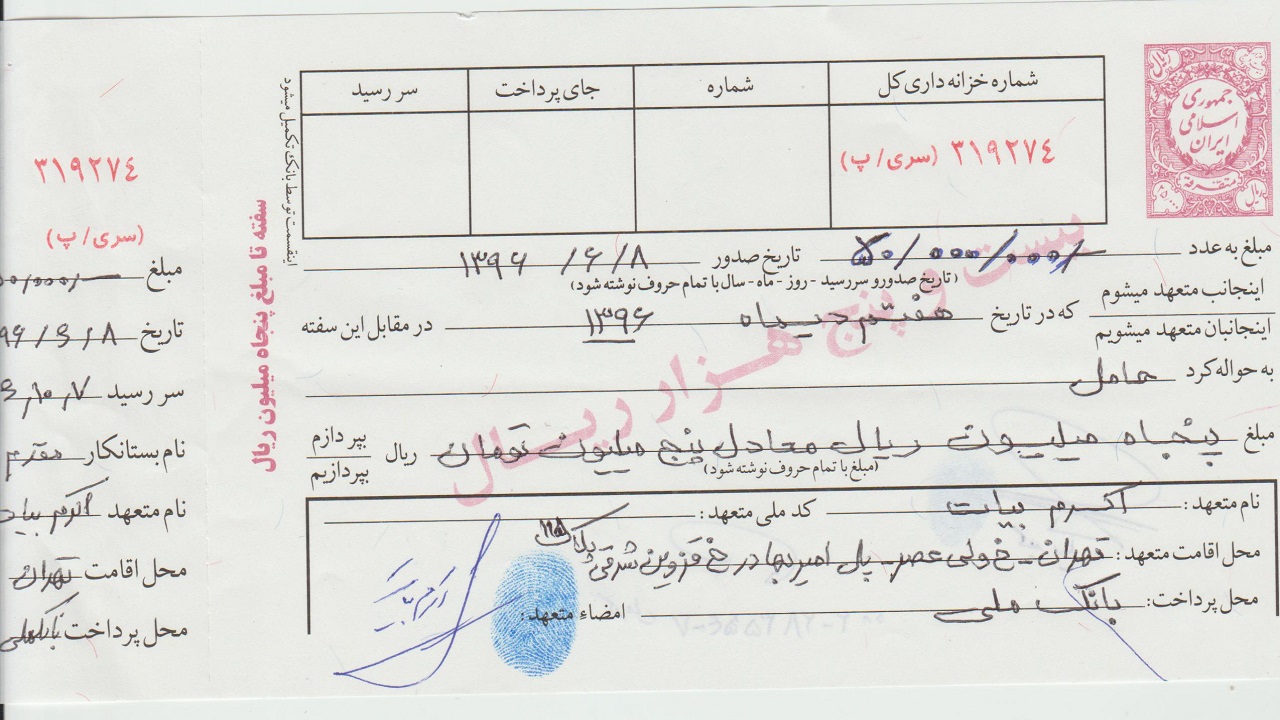 جمهوری
اسلامی
ایران
متفرقه
ریال
شماره خزانه داری کل
شماره
جای پرداخت
سر رسید
۳۱۹۲۷۴ (سری/ پ)
اینقسمت توسط بانک تکمیل میشود
سفته تا مبلغ پنجاه میلیون ریال
بیست و پنج هزار ریال
مبلغ به عدد ۵۰/۰۰۰/۰۰۰/- تاریخ صدور ۱۳۹۶ /۶/۸
(تاریخ صدور و سررسید - روز - ماه - سال با تمام حروف نوشته شود)
اینجانب متعهد میشوم
اینجانبان متعهد میشویم
که در تاریخ هفتم دیماه ۱۳۹۶ در مقابل این سفته
به حواله کرد حامل
مبلغ پنجاه میلیون ریال معادل پنج میلیون تومان ریال
بپردازم
بپردازیم
(مبلغ با تمام حروف نوشته شود)
نام متعهد: اکرم بیات کد ملی متعهد:
محل اقامت متعهد: تهران - خ ولی عصر - پل امیربهادر خ قزوین شرقی پلاک
محل پرداخت: بانک ملی
امضاء متعهد:
۳۱۹۲۷۴
(سری/ پ)
مبلغ ۰۰/۰۰۰/-
تاریخ ۹۶/۶/۸
سر رسید ۱۰٫۷
نام بستانکار
نام متعهد اکرم بیات
محل اقامت تهران
محل پرداخت بانک ملی